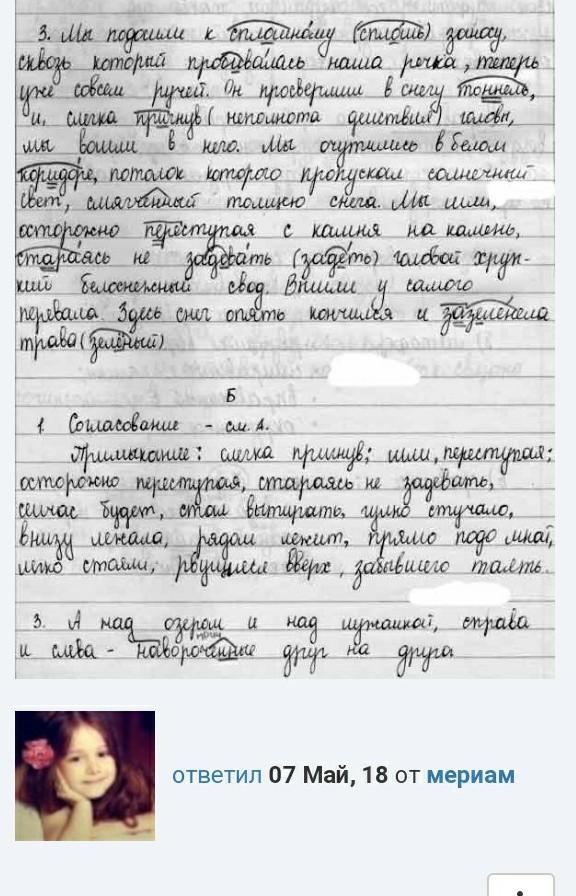 3. Мы подошли к сплошному (сплошь) заносу,
сквозь который пробивалась наша речка, теперь
уже совсем ручей. Он просверлил в снегу тоннель,
и, слегка пригнув (неполнота действия) головы,
мы вошли в него. Мы очутились в белом
коридоре, потолок которого пропускал солнечный
свет, смягчённый толщею снега. Мы шли,
осторожно переступая с камня на камень,
стараясь не задевать (задеть) головой хруп-
кий белоснежный свод. Вышли у самого
перевала. Здесь снег опять кончился и зазеленела
трава (зелёный)
Б
1. Согласование - см. А.
Примыкание: слегка пригнув; шли, переступая;
осторожно переступая, стараясь не задевать,
сейчас будет, стал вытирать, гулко стучало,
внизу лежала, рядом лежит, прямо подо мной,
легко стояли, рвущиеся вверх, забывшего таять.
3. А над озером и над лужайкой, справа
и слева - навороченные друг на друга
ответил 07 Май, 18 от мериам